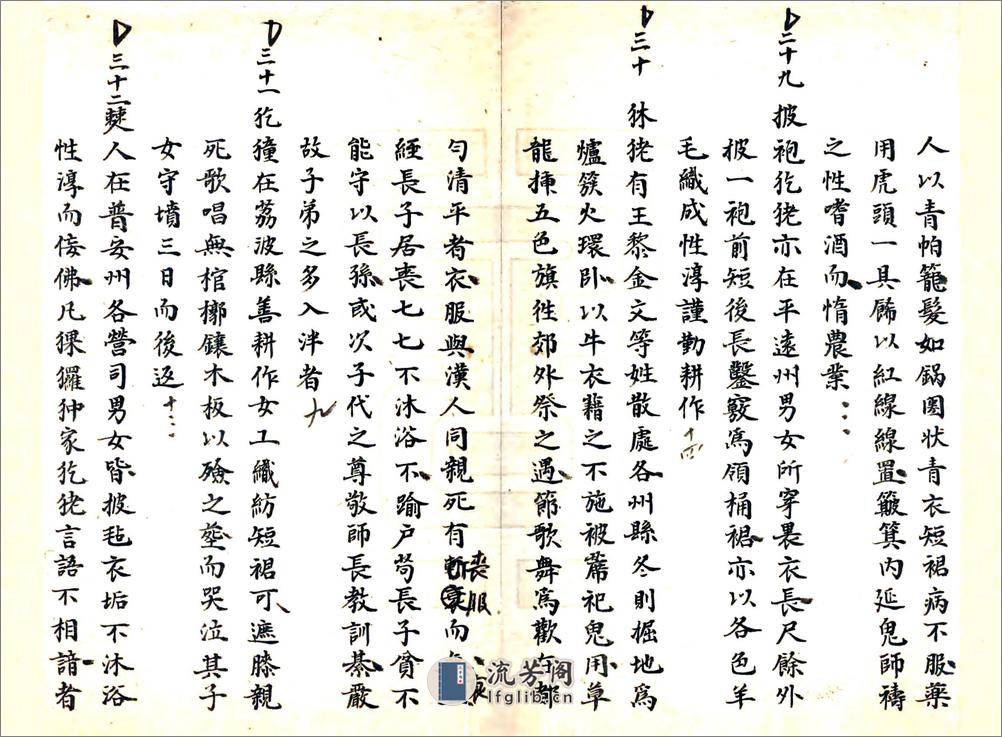 人以青帕籠髮如鍋圏状青衣短裙病不服藥
用虎頭一具餙以紅線線置簸箕內延鬼師禱
之性嗜酒而惰農業
二十九 披袍犵狫亦在平遠州男女所穿畏衣長尺餘外
披一袍前短後長鑿竅為領桶裙亦以各色羊
毛織成性淳謹勤耕作十四
三十 狇狫有王黎金文等姓散處各州縣冬則掘地為
爐簇火環卧以牛衣藉之不施被蓆祀鬼用草
龍揷五色旗徃郊外祭之遇節歌舞為歡在都
勻清平者衣服與漢人同親死有斬衰喪服而哀
絰長子居喪七七不沐浴不踰户茍長子貧不
能守以長孫或次子代之尊敬師長教訓綦嚴
故子弟之多入泮者九
三十一 犵獞在荔波縣善耕作女工織紡短裙可遮膝親
死歌唱無棺槨鑲木板以殮之塟而哭泣其子
女守墳三日而後返
三十二 僰人在普安州各營司男女皆披毡衣垢不沐浴
性淳而佞佛凡猓玀狆家犵狫言語不相諳者
流芳阁
lfglib.cn